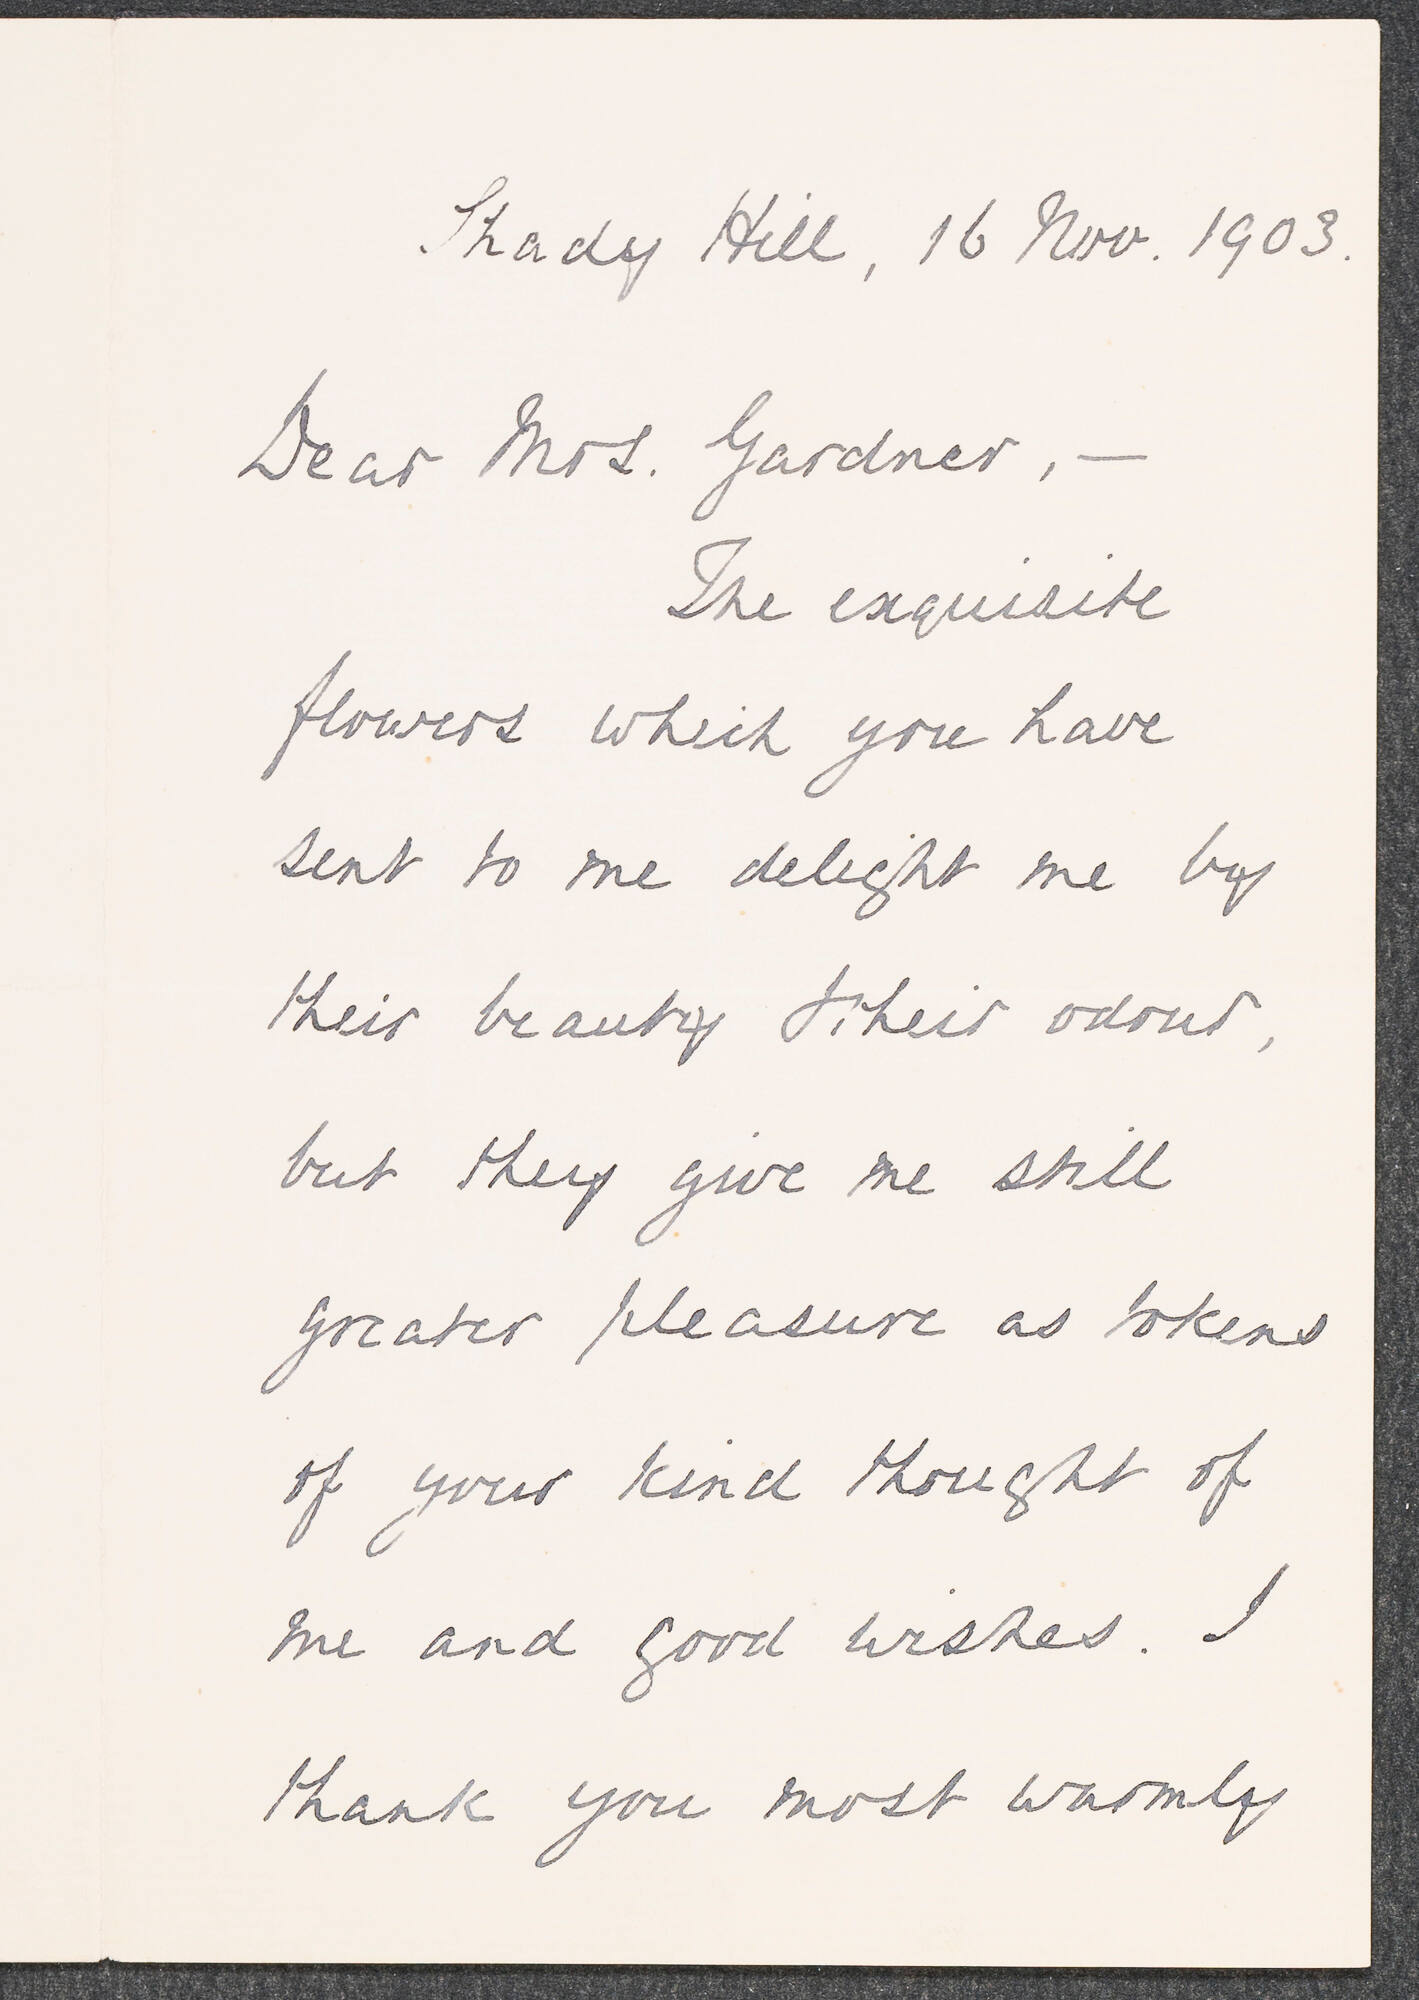 Shady Hill, 16 Nov. 1903.
Dear Mrs. Gardner, —
The exquisite
flowers which you have
sent to me delight me by
their beauty & their odour,
but they give me still
greater pleasure as tokens
of your kind thought of
me and good wishes. I
thank you most warmly